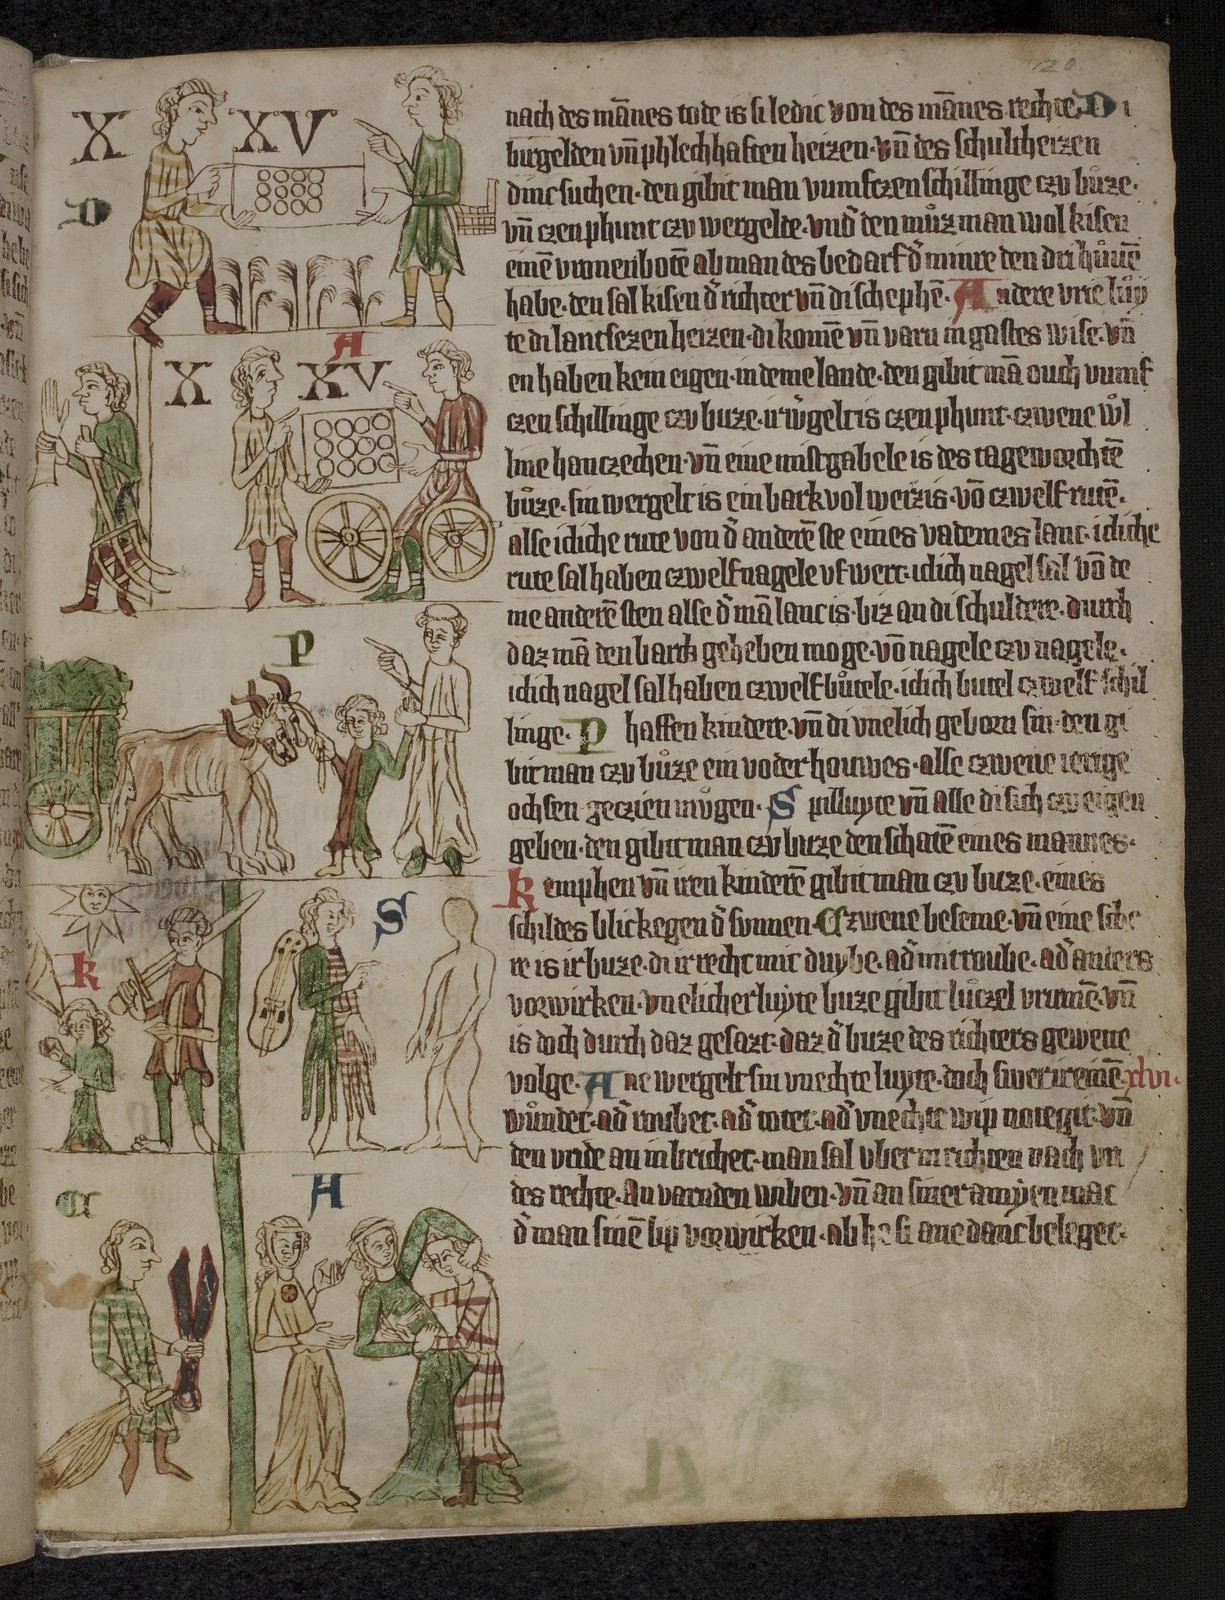 120
X XV
D
A
X XV
P
S
K
A
C
nach des mānes tode is si ledic von des mānes rechte. Di
birgelden vn̄ phlechhaften heizen. vn̄ des schultheizen
dinc suchen. den gibit man vumfczen schillinge czv bůze.
vn̄ czen phunt czv wergelde. vnd̄ den můz man wol kisen
einē vronenbotē ab man des bedarf d̄ minre den dri hůuē
habe. den sal kisen d̄ richter vn̄ di schephē. Andere vrie lůy
te di lantsezen heizen. di komē vn̄ varn in gastes wise. vn̄
en haben kein eigen. in deme lande. den gibit mā ouch vumf
czen schillinge czv buze. ir w̄gelt is czen phunt. czwene wl
line hanczechen. vn̄ eine mistgabele is des tageworchtē
bůze. sin wergelt is ein bark vol weizis. vō czwelf rutē.
alse icliche rute von d̄ anderē ste eines vademes lanc. icliche
rute sal haben czwelf nagele vf wert. iclich nagel sal vō de
me anderē sten alse d̄ mā lanc is. biz an di schuldere. durch
daz mā den barch geheben moge. vō nagele czv nagele.
iclich nagel sal haben czwelf bůtele. iclich butel czwelf schil
linge. Phaffen kindere. vn̄ di vnelich geborn sin. den gi
bit man czv bůze ein voder houwes. alse czwene ierige
ochsen geczien můgen. Spilluyte vn̄ alle di sich czv eigen
geben. den gibit man czv buze den schatē eines mannes.
Kemphen vn̄ iren kinderē gibit man czv buze. eines
schildes blic kegen d̄ sunnen. Czwene beseme. vn̄ eine sche
re is ir buze. di ir recht mit duybe. ad̄ mit roube. ad̄ anders
vorwirken. vnelicher luyte buze gibit lůczel vrumē. vn̄
is doch durch daz gesazt. daz d̄ buze des richters gewette
volge. Ane wergelt sin vnechte luyte. doch swer ir einē xlvi.
wůndet. ad̄ roubet. ad̄ totet. ad̄ vnechte wip notegit. vn̄
den vride an in brichet. man sal vber in richten nach vri
des rechte. An varnden wiben. vn̄ an siner amyen mac
d̄ man sinē lip vorwirken. ab he si ane danc beleget.